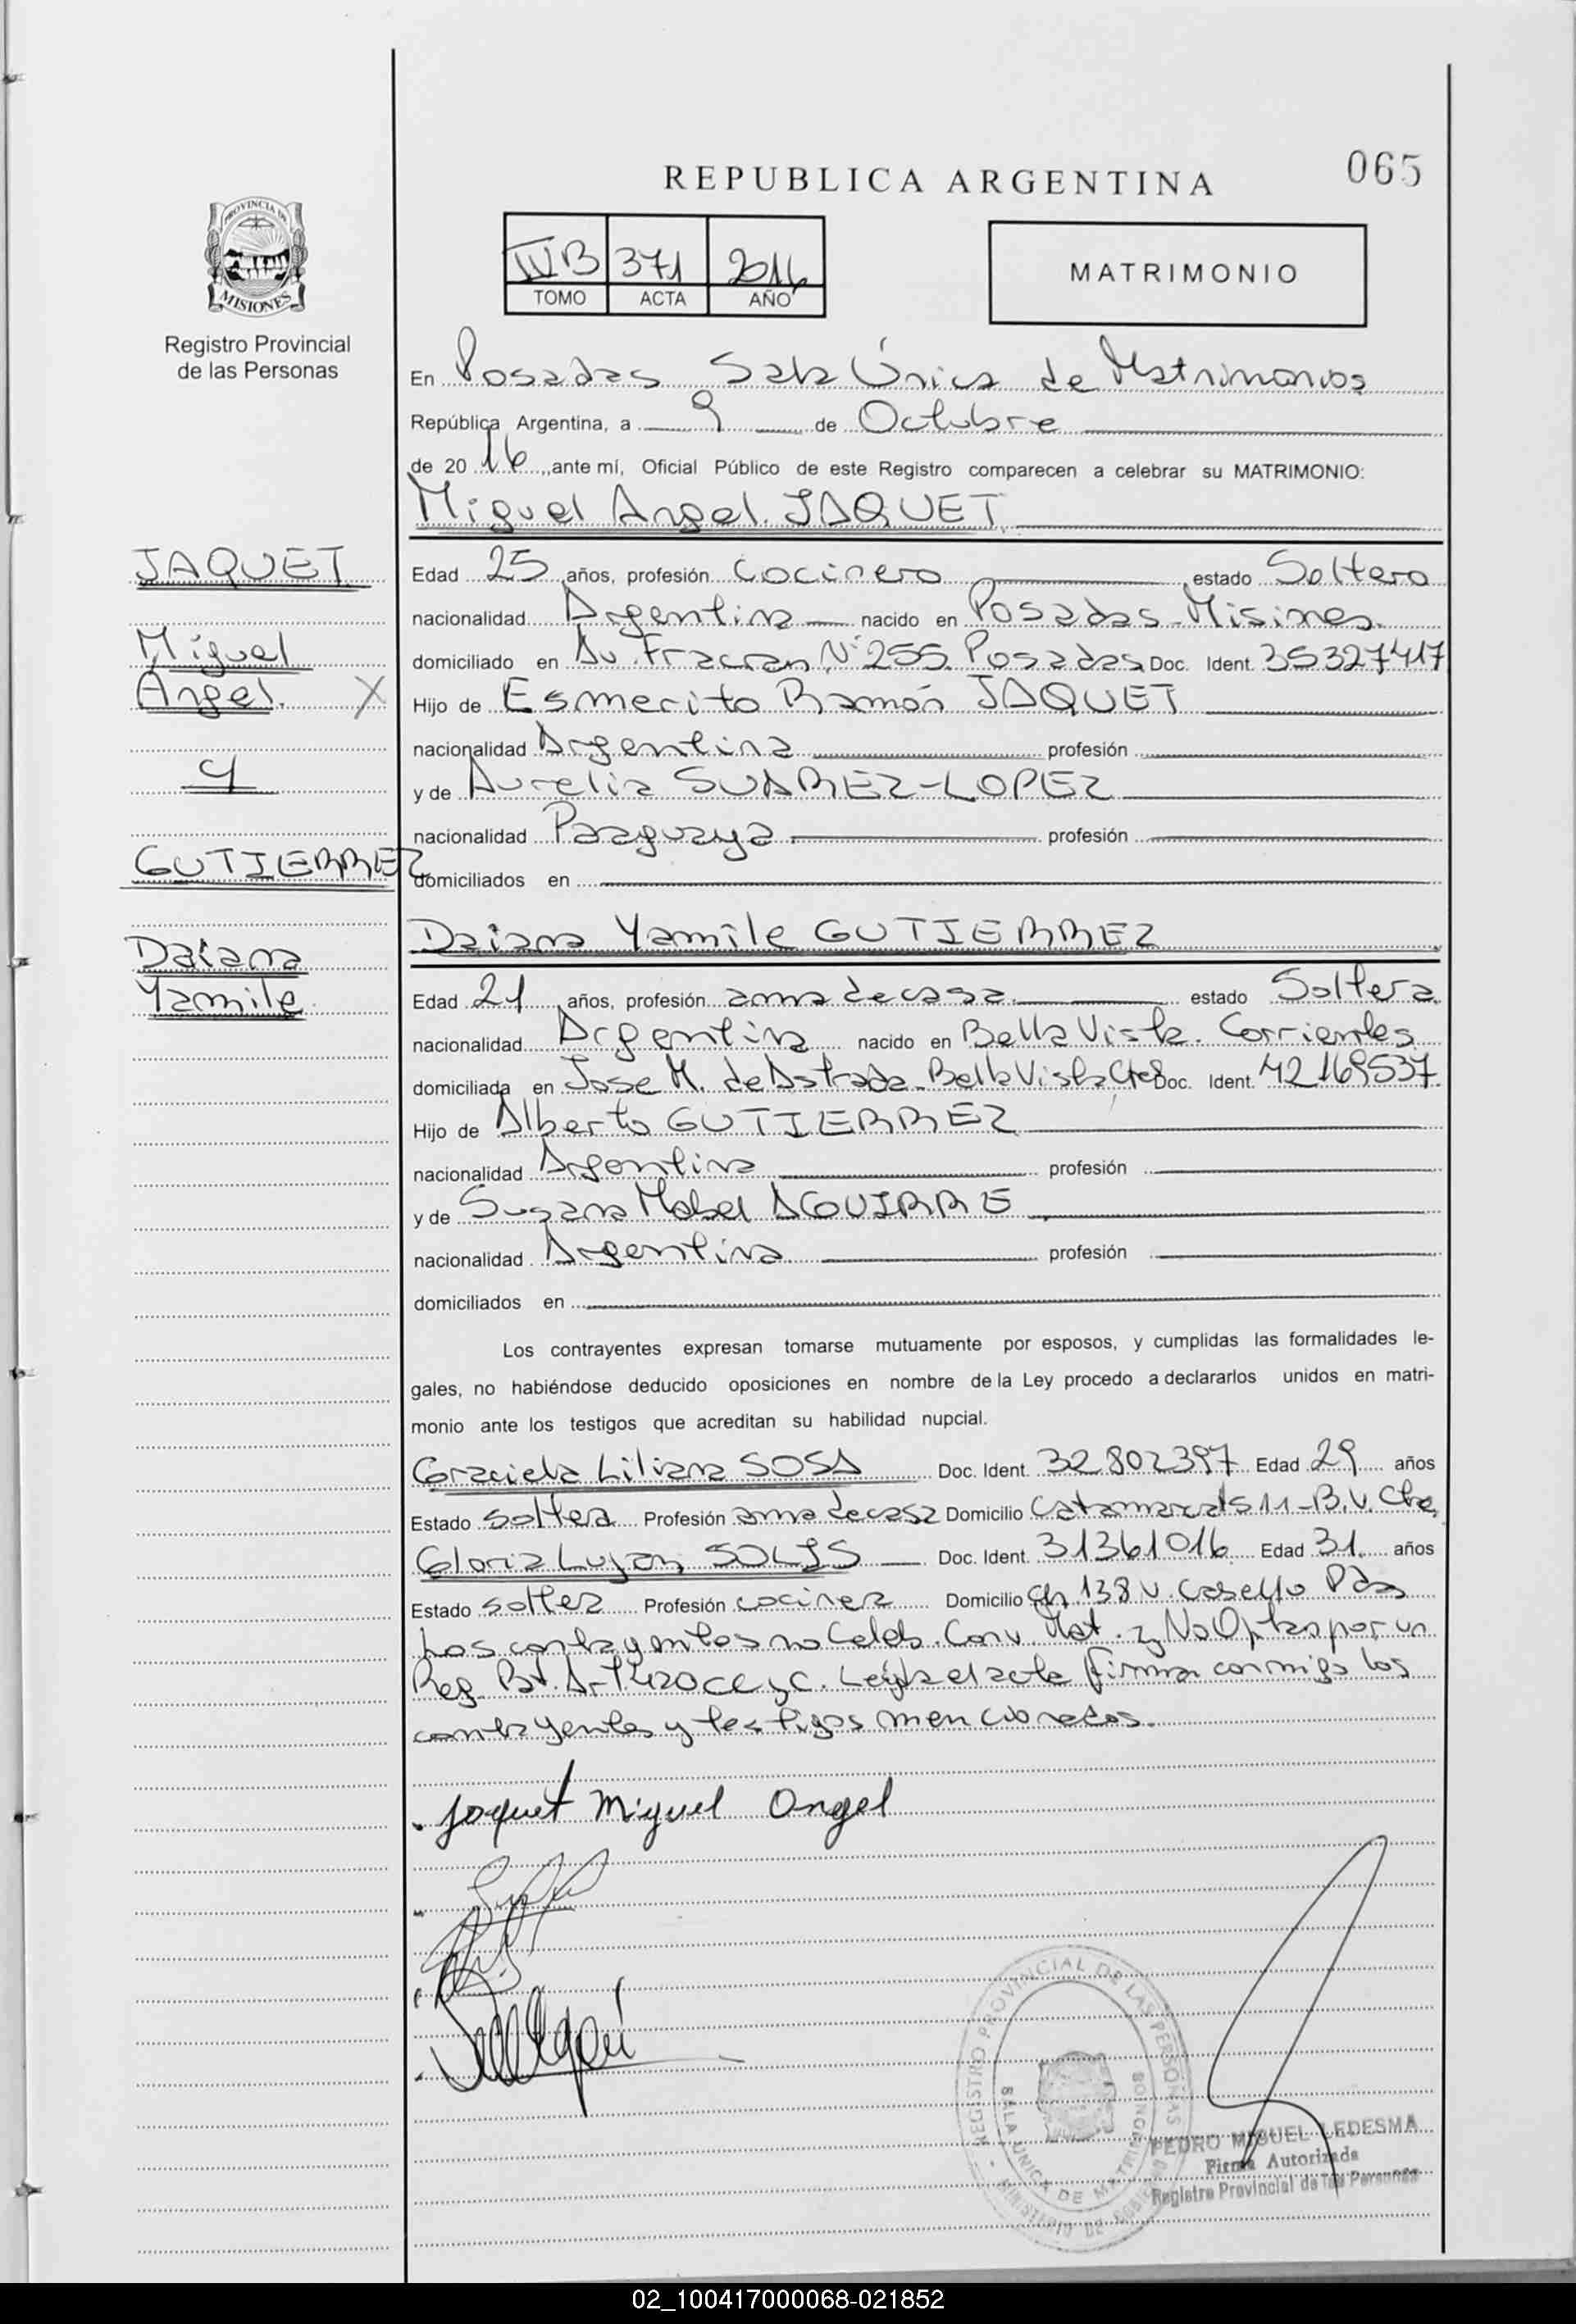 REPUBLICA ARGENTINA
065
PROVINCIA DE
MISIONES
Registro Provincial
de las Personas
IVB 371 2016
TOMO ACTA AÑO
MATRIMONIO
En Posadas Sala Única de Matrimonios
República Argentina, a 9 de Octubre
de 20 16, ante mí, Oficial Público de este Registro comparecen a celebrar su MATRIMONIO:
Miguel Angel JAQUET
JAQUET
Miguel
Angel. X
y
GUTIERREZ
Daiana
Yamile
Edad 25 años, profesión Cocinero estado Soltero
nacionalidad Argentina nacido en Posadas-Misiones.
domiciliado en Av. Fracran N° 255. Posadas Doc. Ident. 35327417
Hijo de Esmerito Ramón JAQUET
nacionalidad Argentina profesión
y de Aurelia SUAREZ-LOPEZ
nacionalidad Paraguaya profesión
domiciliados en
Daiana Yamile GUTIERREZ
Edad 21 años, profesión ama de casa estado Soltera
nacionalidad Argentina nacido en Bella Vista. Corrientes
domiciliada en Jose M. de Astrada-Bella Vista Ctes Doc. Ident. 42169537
Hijo de Alberto GUTIERREZ
nacionalidad Argentina profesión
y de Susana Mabel AGUIRRE
nacionalidad Argentina profesión
domiciliados en
Los contrayentes expresan tomarse mutuamente por esposos, y cumplidas las formalidades le-
gales, no habiéndose deducido oposiciones en nombre de la Ley procedo a declararlos unidos en matri-
monio ante los testigos que acreditan su habilidad nupcial.
Graciela Liliana SOSA Doc. Ident. 32802397 Edad 29 años
Estado soltera Profesión ama de casa Domicilio Catamarca 1511-B.V. Ctes
Gloria Lujan SOLIS Doc. Ident. 31361016 Edad 31 años
Estado soltera Profesión cocinera Domicilio Ch 138 V. Pdas
Los contrayentes no Celeb. Conv. Mat. y No Optan por un
Reg. Pat. Art 420 CC y C. Leída el acta firman conmigo los
contrayentes y testigos mencionados.
Jaquet Miguel Angel
REGISTRO PROVINCIAL DE LAS PERSONAS
SALA UNICA DE MATRIMONIOS
PEDRO MIGUEL LEDESMA
Firma Autorizada
Registro Provincial de las Personas
02_100417000068-021852